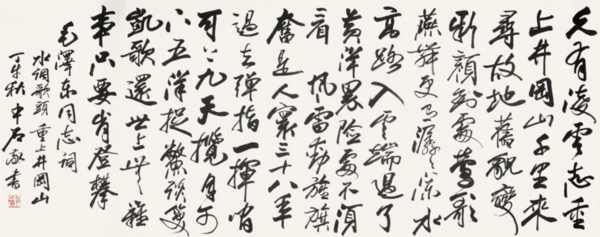 久有凌雲志重
上井岡山千里來
尋故地舊貌變
新顏到處鶯歌
燕舞更有潺〻流水
高路入雲端過了
黃洋界險處不須
看風雷動旌旗
奮是人寰三十八年
過去彈指一揮間
可上九天攬月可
下五洋捉鱉談笑
凱歌還世上無難
事只要肯登攀
毛澤東同志詞
水調歌頭重上井岡山
丁亥秋中石敬書